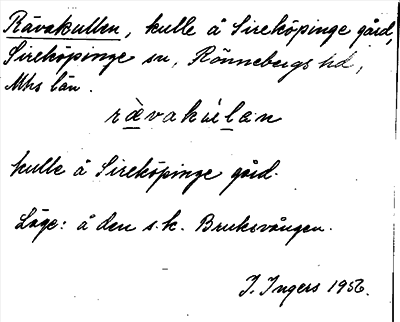 Rävakullen, kulle å Sireköpinge gård,
Sireköpinge sn, Rönnebergs hd,
Mhs län.
rävakúlan
kulle å Sireköpinge gård.
Läge: å den s.k. Bruksvången.
I. Ingers 1956.